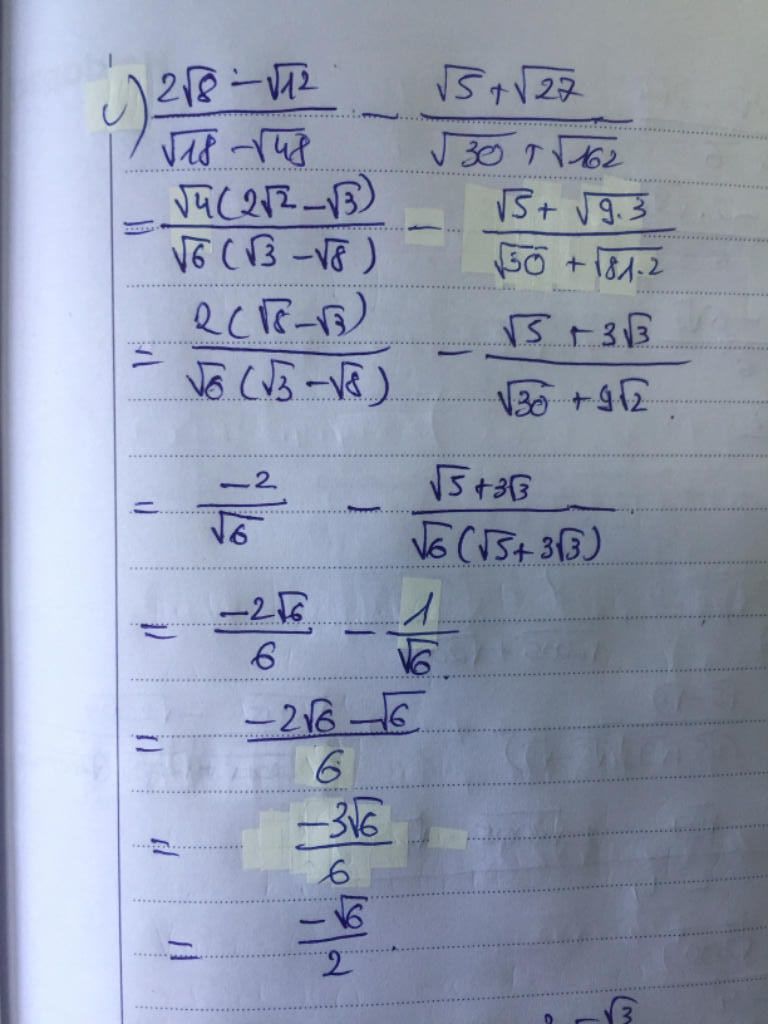 c) (2√8 - √12)/(√18 - √48) - (√5 + √27)/(√30 + √162)
= (√4(2√2 - √3))/(√6(√3 - √8)) - (√5 + √9.3)/(√30 + √81.2)
= (2(√8 - √3))/(√6(√3 - √8)) - (√5 + 3√3)/(√30 + 9√2)
= (-2)/(√6) - (√5 + 3√3)/(√6(√5 + 3√3))
= (-2√6)/6 - 1/√6
= (-2√6 - √6)/6
= (-3√6)/6
= (-√6)/2.
-√3